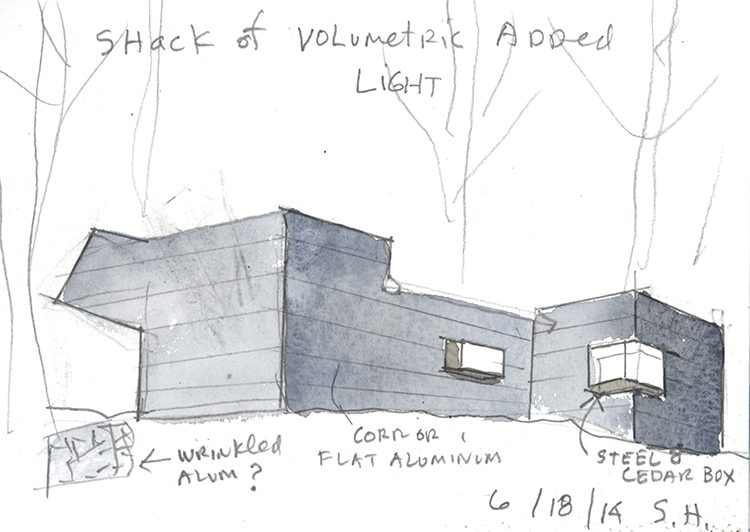 SHACK of VOLUMETRIC ADDed
LIGHT
WRINKLED
ALUM?
CORR OR
FLAT ALUMINUM
STEEL &
CEDAR BOX
6/18/14 S.H.